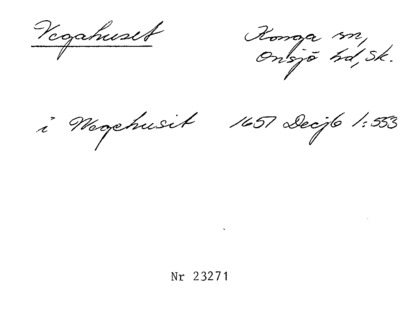 Vegahuset Konga sn,
Onsjö hd, Sk.
i Wegehusit 1651 Decjb 1:553
Nr 23271